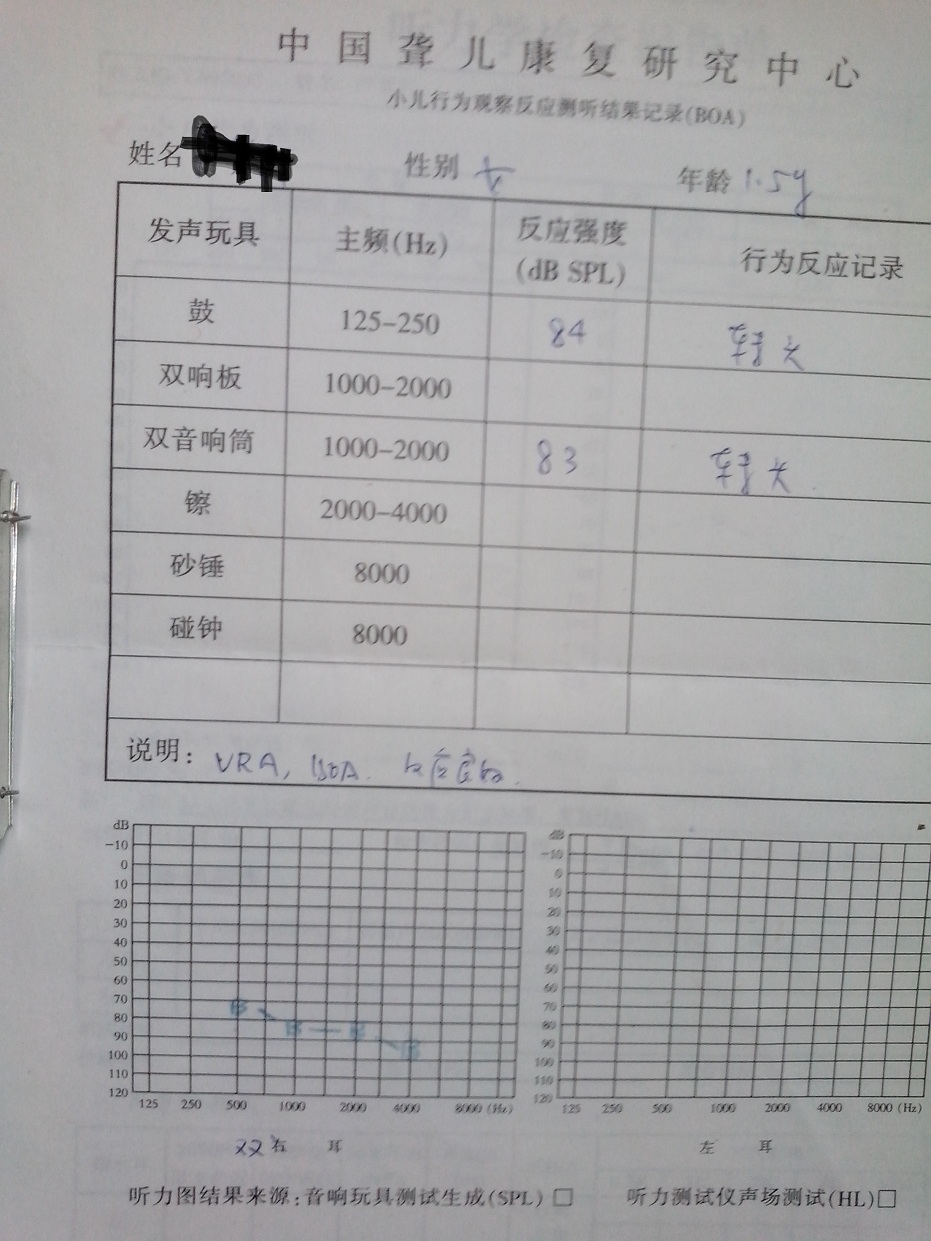 中国聋儿康复研究中心
小儿行为观察反应测听结果记录(BOA)
姓名 性别 女 年龄 1.5y
发声玩具 主频(Hz) 反应强度(dB SPL) 行为反应记录
鼓 125-250 84 转头
双响板 1000-2000
双音响筒 1000-2000 83 转头
镲 2000-4000
砂锤 8000
碰钟 8000
说明: VRA, BOA.
dB
-10
0
10
20
30
40
50
60
70
80
90
100
110
120
125 250 500 1000 2000 4000 8000 (Hz)
dB
-10
0
10
20
30
40
50
60
70
80
90
100
110
120
125 250 500 1000 2000 4000 8000 (Hz)
B B B B
双右 耳
左 耳
听力图结果来源:音响玩具测试生成(SPL) □ 听力测试仪声场测试(HL)□